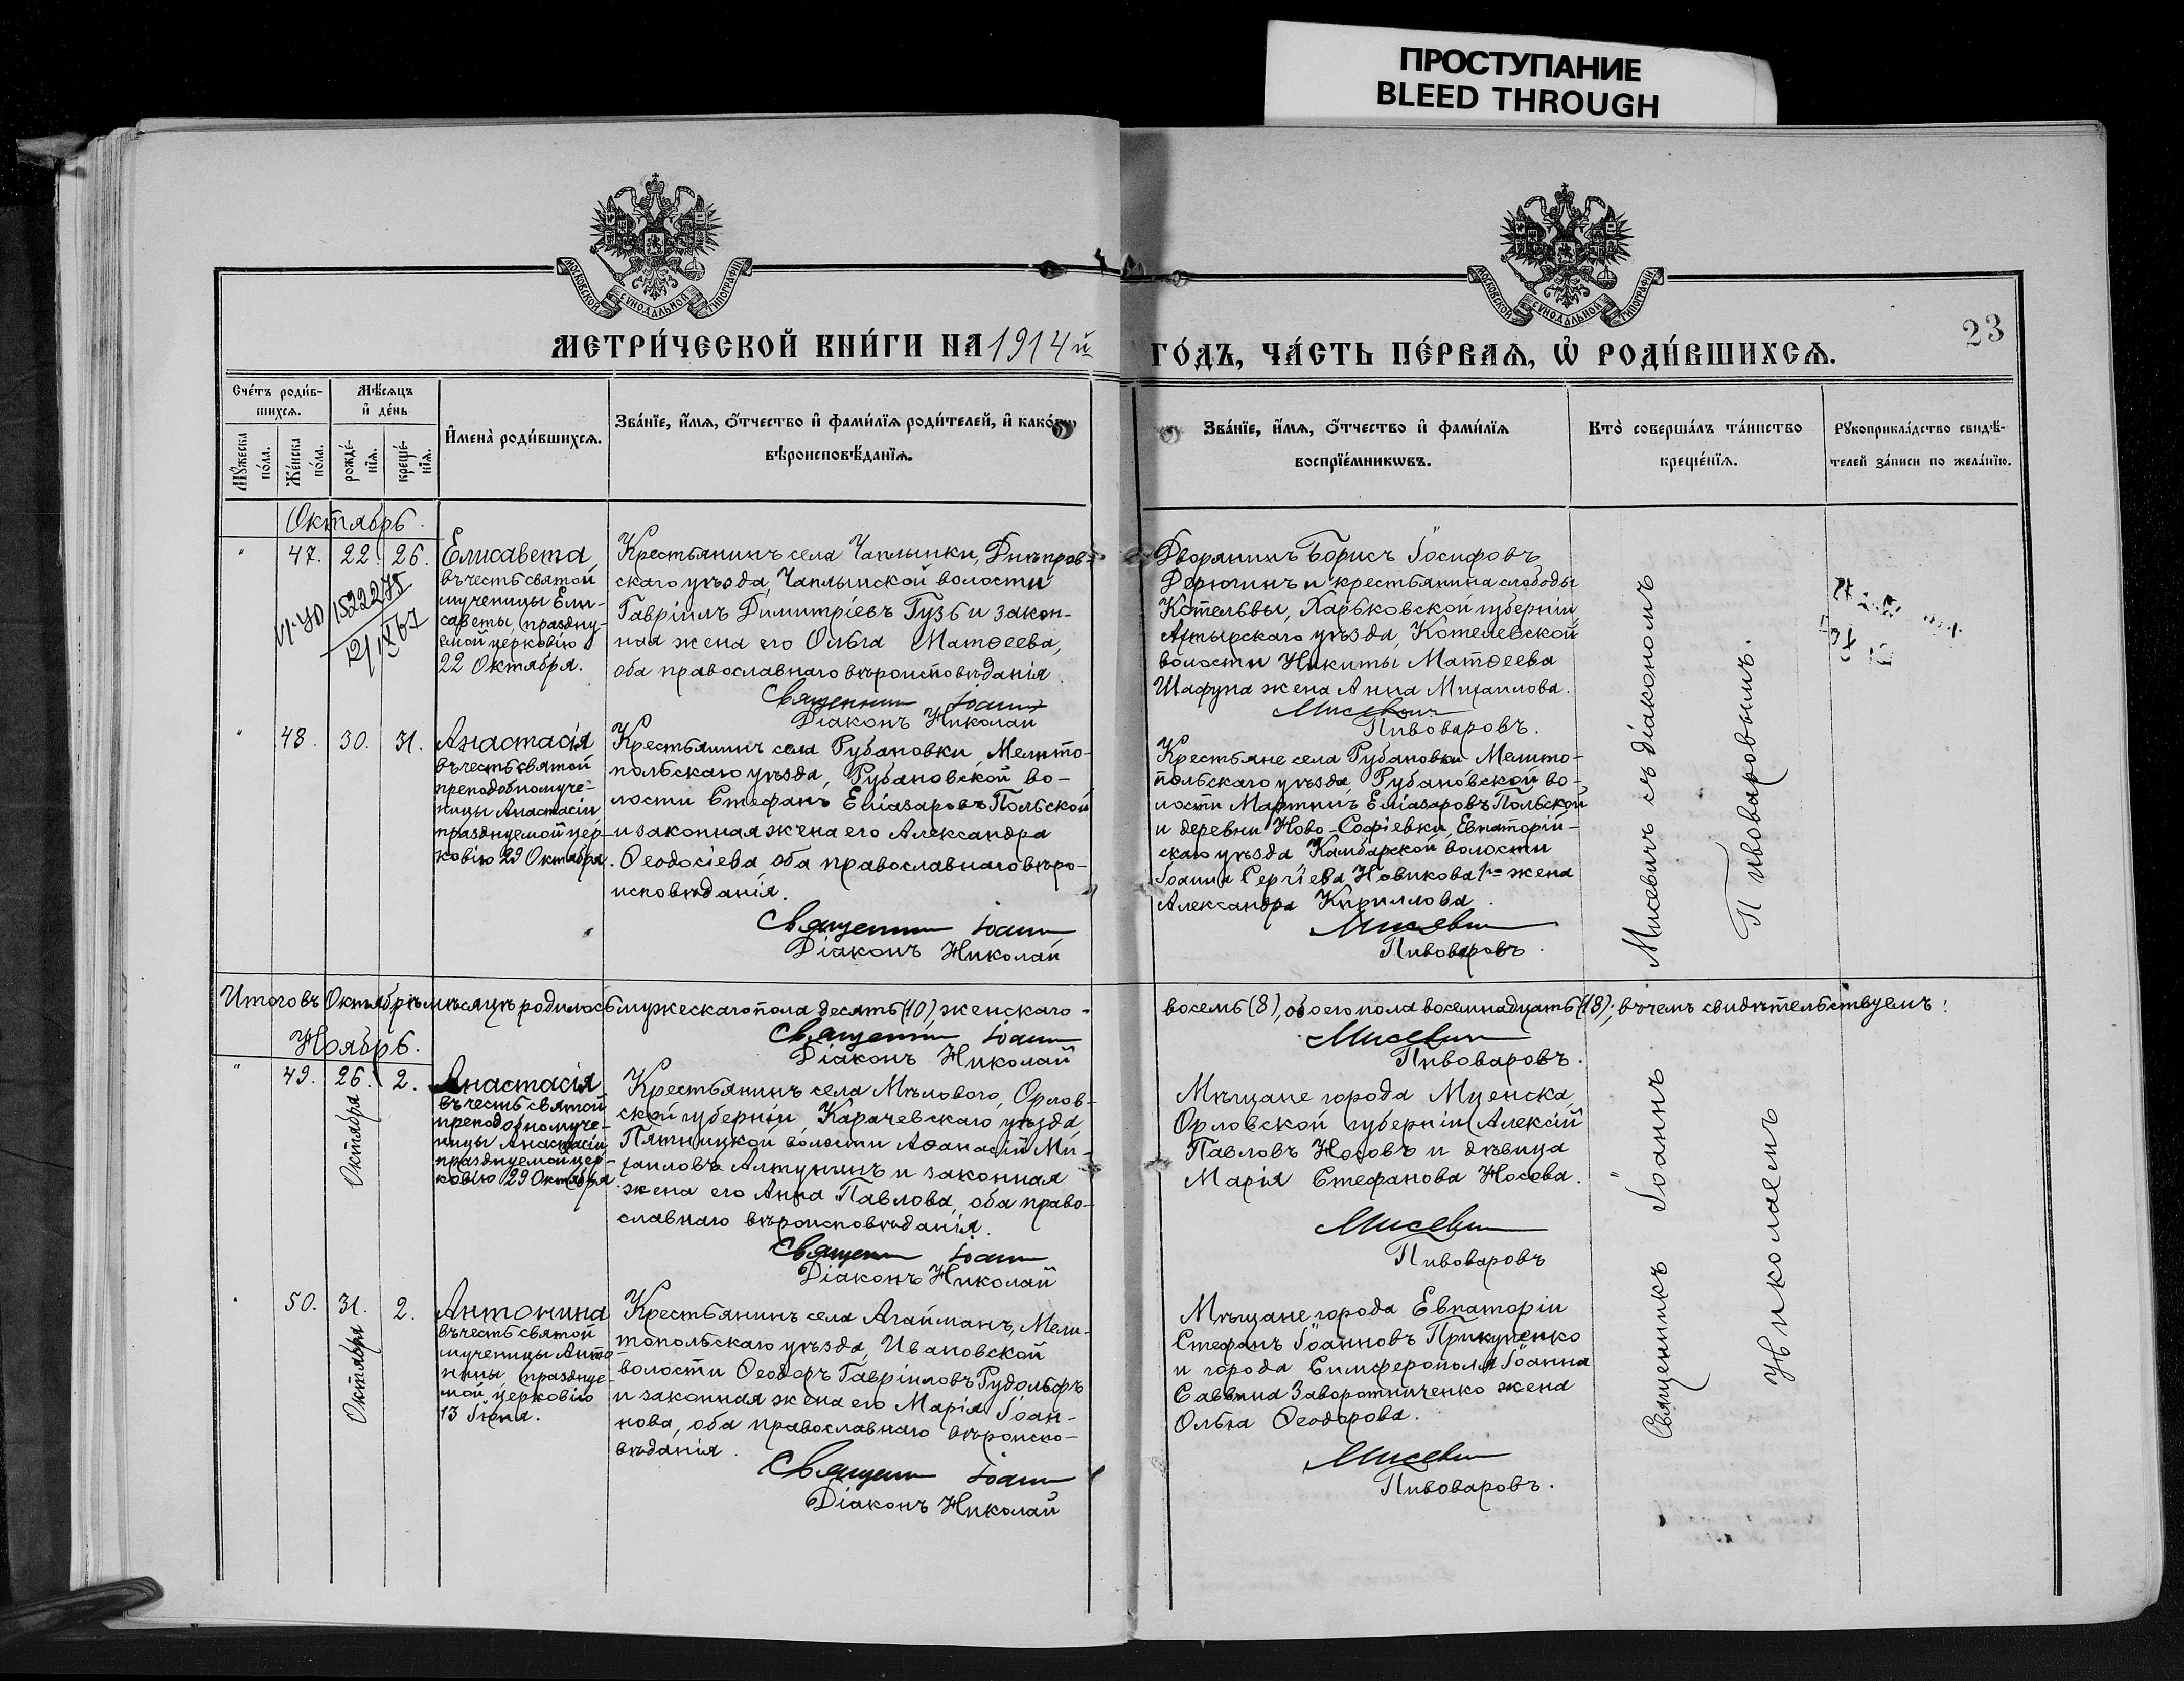 ПРОСТУПАНИЕ
BLEED THROUGH
МОСКОВСКОЙ СѴНОДАЛЬНОЙ ТИПОГРАФІИ
МОСКОВСКОЙ СѴНОДАЛЬНОЙ ТИПОГРАФІИ
23
МЕТРИ́ЧЕСКОЙ КНИ́ГИ НА 1914 й
ГО́ДЪ, ЧА́СТЬ ПЕ́РВАѦ, Ѽ РОДИ́ВШИХСѦ.
Сче́тъ роди́в-
шихсѧ.
Мꙋ́жеска по́ла.
Же́нска по́ла.
Мѣ́сѧцъ
и҆ де́нь
рожде́-
нїѧ.
креще́-
нїѧ.
И҆мена̀ роди́вшихсѧ.
Зва́нїе, и҆́мѧ, ѻ҆́тчество и҆ фами́лїѧ роди́телей, и҆ како́гѡ
вѣроисповѣ́данїѧ.
Зва́нїе, и҆́мѧ, ѻ҆́тчество и҆ фами́лїѧ
воспрїе́мникѡвъ.
Кто̀ соверша́лъ та́инство
креще́нїѧ.
Рꙋкоприкла́дство свидѣ́-
телей за́писи по жела́нїю.
Октябрь.
" 47. 22. 26.
Елисавета
въ честь святой
мученицы Ели-
саветы, праздну-
емой церковію
22 Октября.
1522275
12/IX 67
Крестьянинъ села Чаплынки, Днѣпров-
скаго уѣзда, Чаплынской волости
Гавріилъ Димитріевъ Гузь и закон-
ная жена его Ольга Матѳеева,
оба православнаго вѣроисповѣданія.
Священник Іоанн
Діаконъ Николай
Дворянинъ Борисъ Іосифовъ
Дерюгинъ и крестьянина слободы
Котельвы, Харьковской губерніи,
Ахтырскаго уѣзда, Котелевской
волости Никиты Матѳеева
Шафуна жена Анна Михаилова.
Мисевич
Пивоваровъ.
" 48. 30. 31.
Анастасія
въ честь святой
преподобномуче-
ницы Анастасіи
празднуемой цер-
ковію 29 Октября.
Крестьянинъ села Рубановки, Мелито-
польскаго уѣзда, Рубановской во-
лости Стефанъ Еліазаровъ Польской
и законная жена его Александра
Ѳеодосіева, оба православнаго вѣро-
исповѣданія.
Священник Іоанн
Діаконъ Николай
Крестьяне села Рубановки Мелито-
польскаго уѣзда, Рубановской во-
лости Мартинъ Еліазаровъ Польской
и деревни Ново-Софіевки, Евпаторій-
скаго уѣзда Камбарской волости
Іоанна Сергіева Новикова 1-го жена
Александра Кириллова.
Мисевич
Пивоваровъ.
Итого въ Октябрѣ мѣсяцѣ родилось мужескаго пола десять (10), женскаго -
восемь (8), обоего пола восемнадцать (18); въ чемъ свидѣтельствуемъ:
Священник Іоанн
Діаконъ Николай
Мисевич
Пивоваровъ.
Ноябрь.
" 49. 26. Октября 2.
Анастасія
въ честь святой
преподобномуче-
ницы Анастасіи
празднуемой цер-
ковію 29 Октября.
Крестьянинъ села Мѣлового, Орлов-
ской губерніи, Карачевскаго уѣзда
Пятницкой волости Аѳанасій Ми-
хаиловъ Алтунинъ и законная
жена его Анна Павлова, оба право-
славнаго вѣроисповѣданія.
Священник Іоанн
Діаконъ Николай
Мѣщане города Мценска,
Орловской губерніи Алексій
Павловъ Носовъ и дѣвица
Марія Стефанова Носова.
Мисевич
Пивоваровъ
" 50. 31. Октября 2.
Антонина
въ честь святой
мученицы Анто-
нины, празднуе-
мой церковію
13 Іюня.
Крестьянинъ села Агайманъ, Мели-
топольскаго уѣзда, Ивановской
волости Ѳеодоръ Гавріиловъ Рудольфъ
и законная жена его Марія Іоан-
нова, оба православнаго вѣроиспо-
вѣданія.
Священник Іоанн
Діаконъ Николай
Мѣщане города Евпаторіи
Стефанъ Іоанновъ Прикупенко
и города Симферополя Іоанна
Саввина Заворотниченко жена
Ольга Ѳеодорова.
Мисевич
Пивоваровъ.
Священникъ Іоаннъ Мисевичъ съ діакономъ
Николаемъ Пивоваровымъ.